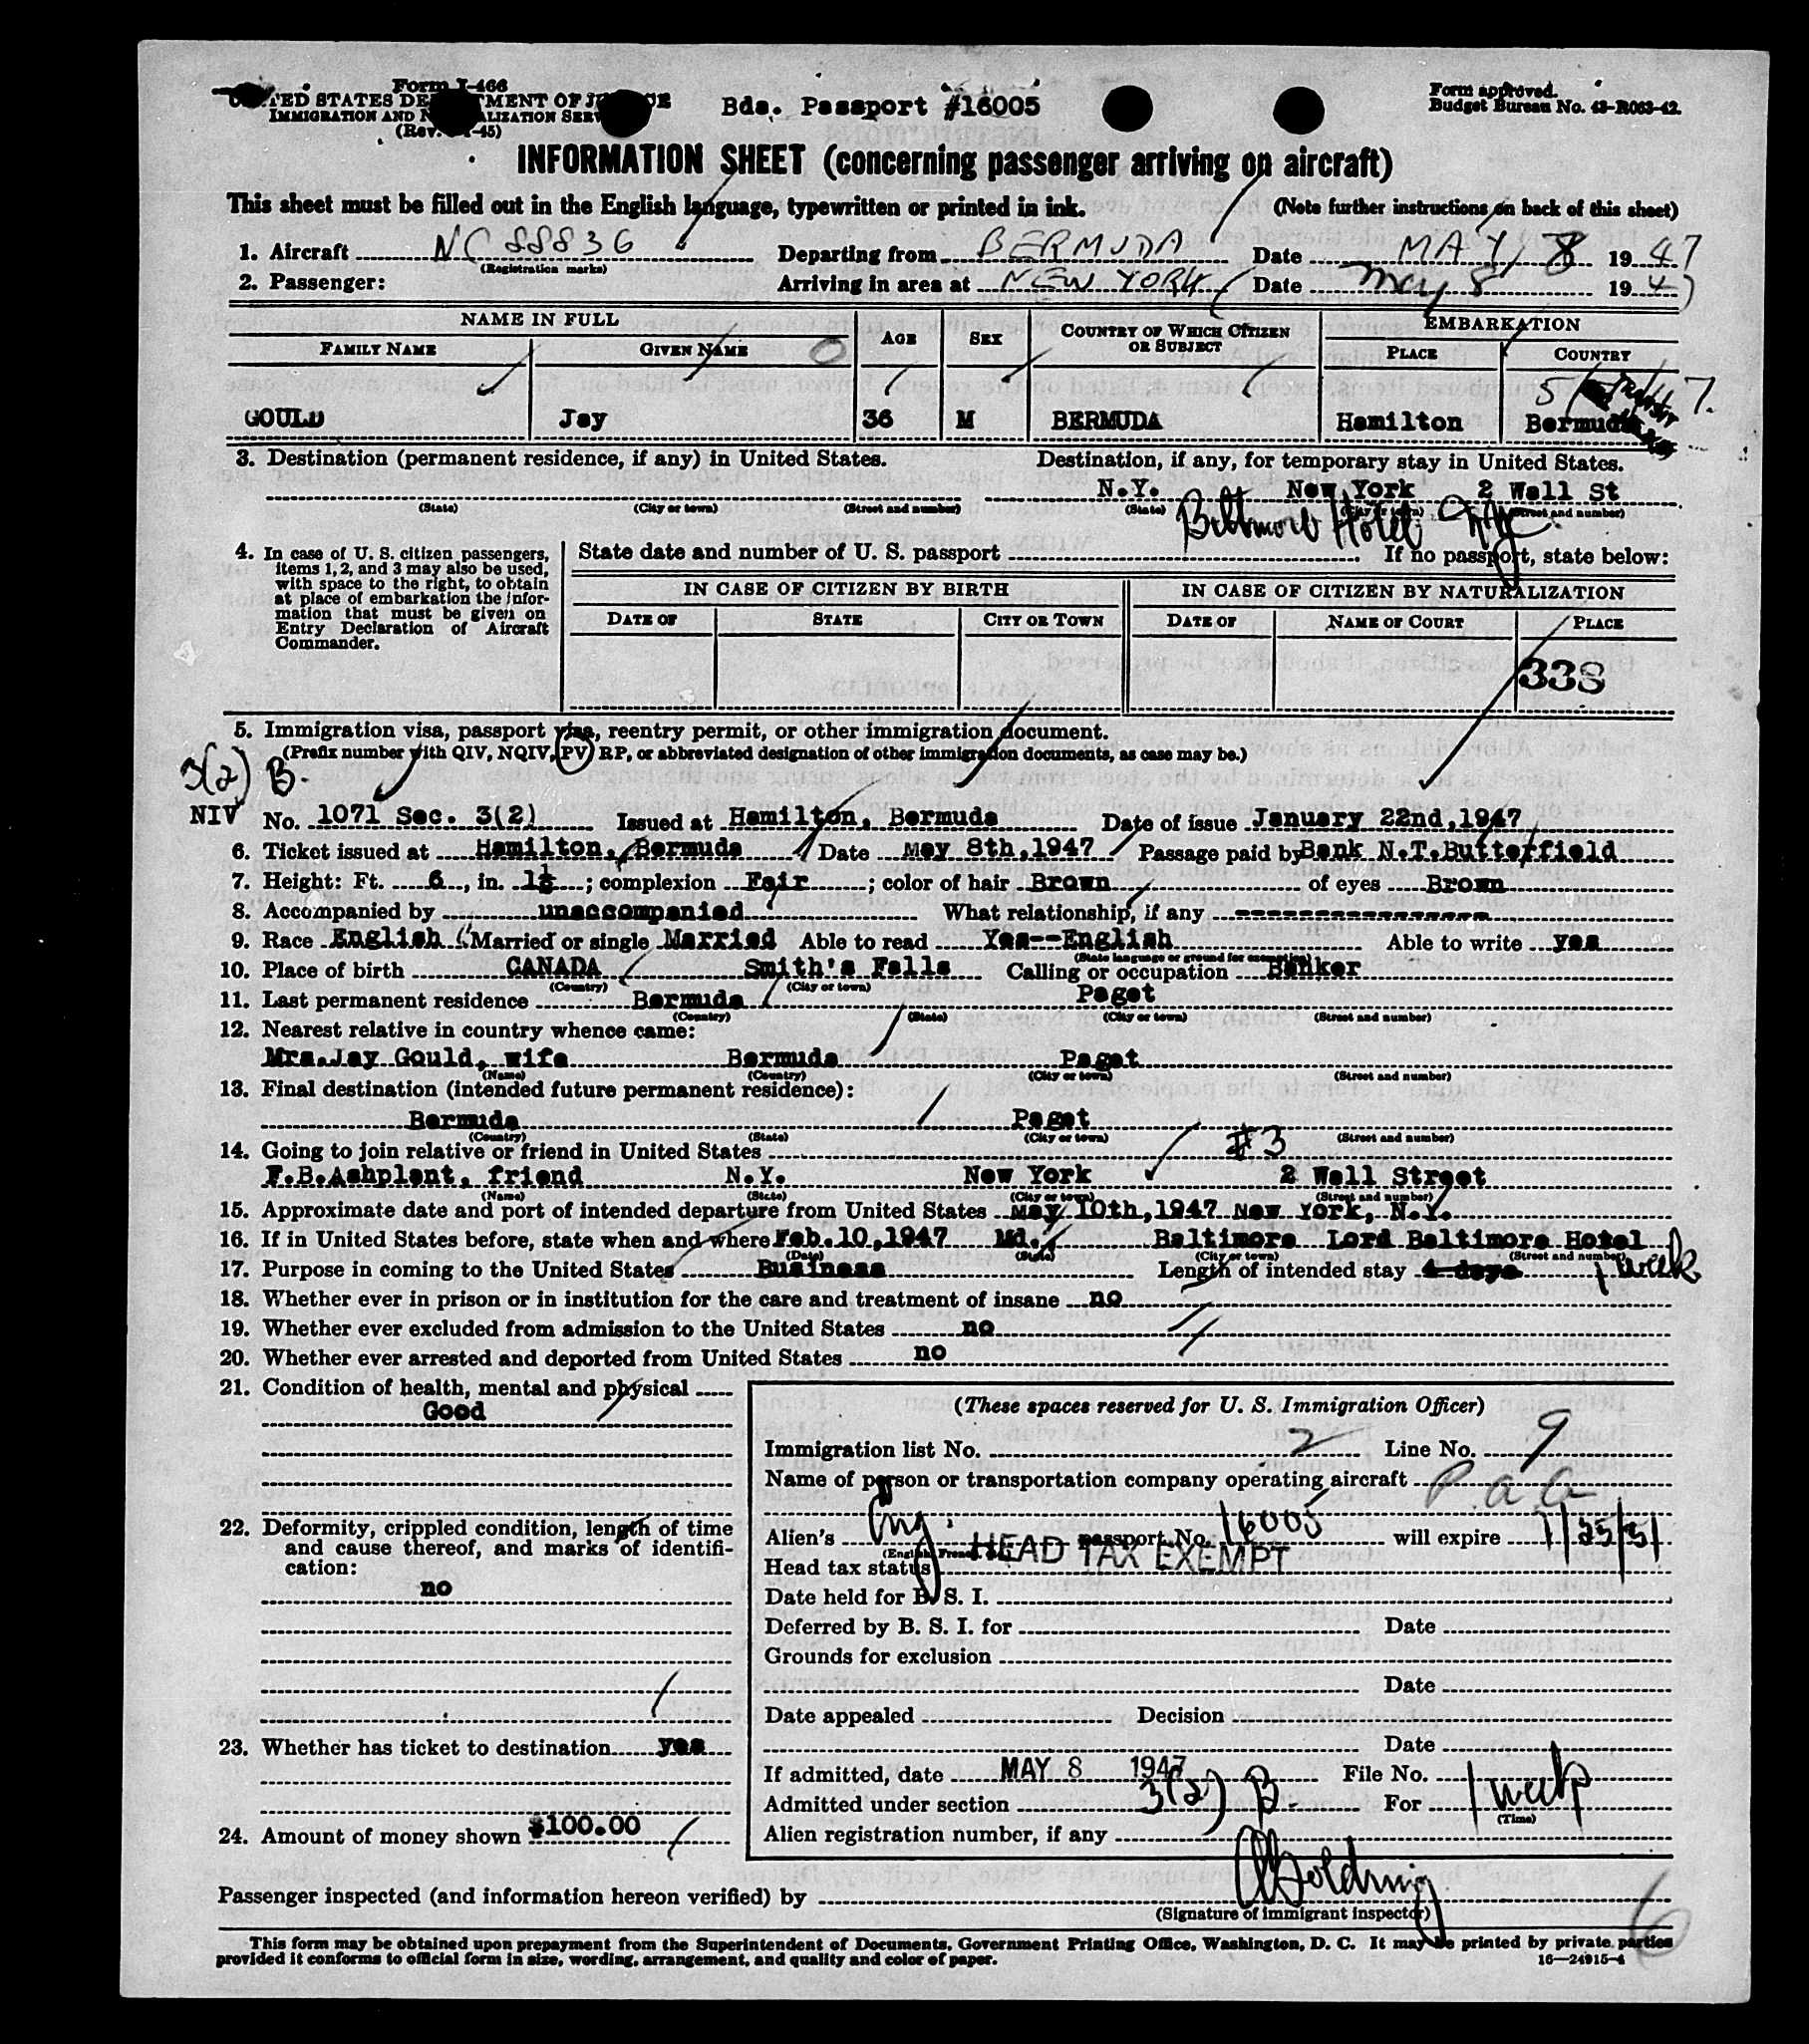 Form I-466
UNITED STATES DEPARTMENT OF JUSTICE
IMMIGRATION AND NATURALIZATION SERVICE
(Rev. -45)
Bda. Passport #16005
Form approved.
Budget Bureau No. 43-R063-42.
INFORMATION SHEET (concerning passenger arriving on aircraft)
This sheet must be filled out in the English language, typewritten or printed in ink. (Note further instructions on back of this sheet)
1. Aircraft NC 88836 Departing from BERMUDA Date MAY 8 1947
(Registration marks)
2. Passenger: Arriving in area at NEW YORK Date May 8 1947
NAME IN FULL AGE SEX COUNTRY OF WHICH CITIZEN OR SUBJECT EMBARKATION
FAMILY NAME GIVEN NAME PLACE COUNTRY
GOULD Jay 36 M BERMUDA Hamilton Bermuda
3. Destination (permanent residence, if any) in United States. Destination, if any, for temporary stay in United States.
N.Y. New York 2 Wall St
(State) (City or town) (Street and number) (State) (City or town) (Street and number)
Biltmore Hotel NYC
4. In case of U. S. citizen passengers, items 1, 2, and 3 may also be used, with space to the right, to obtain at place of embarkation the information that must be given on Entry Declaration of Aircraft Commander.
State date and number of U. S. passport If no passport, state below:
IN CASE OF CITIZEN BY BIRTH IN CASE OF CITIZEN BY NATURALIZATION
DATE OF STATE CITY OR TOWN DATE OF NAME OF COURT PLACE
338
5. Immigration visa, passport visa, reentry permit, or other immigration document.
(Prefix number with QIV, NQIV, PV, RP, or abbreviated designation of other immigration documents, as case may be.)
3(2) B.
NIV No. 1071 Sec. 3(2) Issued at Hamilton, Bermuda Date of issue January 22nd,1947
6. Ticket issued at Hamilton, Bermuda Date May 8th,1947 Passage paid by Bank N.T.Butterfield
7. Height: Ft. 6, in. 1½; complexion Fair; color of hair Brown of eyes Brown
8. Accompanied by unaccompanied What relationship, if any
9. Race English Married or single Married Able to read Yes--English Able to write yes
(State language or ground for exemption)
10. Place of birth CANADA Smith's Falls Calling or occupation Banker
(Country) (City or town)
11. Last permanent residence Bermuda Paget
(Country) (State) (City or town) (Street and number)
12. Nearest relative in country whence came:
Mrs.Jay Gould, wife Bermuda Paget
(Name) (Country) (City or town) (Street and number)
13. Final destination (intended future permanent residence):
Bermuda Paget
(Country) (State) (City or town) (Street and number)
14. Going to join relative or friend in United States #3
F.B.Ashplant, friend N.Y. New York 2 Wall Street
(Name) (State) (City or town) (Street and number)
15. Approximate date and port of intended departure from United States May 10th,1947 New York, N.Y.
16. If in United States before, state when and where Feb.10,1947 Md. Baltimore Lord Baltimore Hotel
(Date) (State) (City or town) (Street and number)
17. Purpose in coming to the United States Business Length of intended stay 4 days 1 week
18. Whether ever in prison or in institution for the care and treatment of insane no
19. Whether ever excluded from admission to the United States no
20. Whether ever arrested and deported from United States no
21. Condition of health, mental and physical
Good
22. Deformity, crippled condition, length of time and cause thereof, and marks of identification:
no
23. Whether has ticket to destination yes
24. Amount of money shown $100.00
(These spaces reserved for U. S. Immigration Officer)
Immigration list No. 2 Line No. 9
Name of person or transportation company operating aircraft P.a.a.
Alien's Eng. passport No. 16005 will expire 1/25/51
Head tax status HEAD TAX EXEMPT
Date held for B. S. I.
Deferred by B. S. I. for Date
Grounds for exclusion
Date
Date appealed Decision
Date
If admitted, date MAY 8 1947 File No.
Admitted under section 3(2) B. For 1 week
(Time)
Alien registration number, if any
Passenger inspected (and information hereon verified) by
(Signature of immigrant inspector)
6
This form may be obtained upon prepayment from the Superintendent of Documents, Government Printing Office, Washington, D. C. It may be printed by private parties
provided it conforms to official form in size, wording, arrangement, and quality and color of paper. 16—24915-4